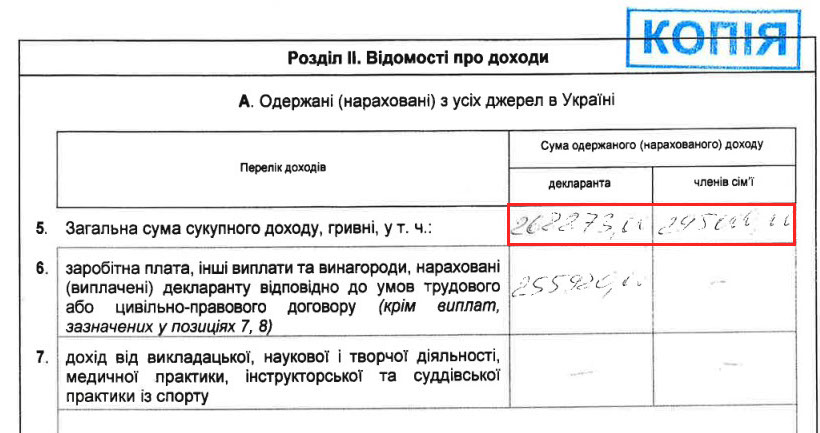 КОПІЯ
Розділ II. Відомості про доходи
А. Одержані (нараховані) з усіх джерел в Україні
Перелік доходів
Сума одержаного (нарахованого) доходу
декларанта
членів сім'ї
5. Загальна сума сукупного доходу, гривні, у т. ч.:
268273,00
6. заробітна плата, інші виплати та винагороди, нараховані
(виплачені) декларанту відповідно до умов трудового
або цивільно-правового договору (крім виплат,
зазначених у позиціях 7, 8)
-
7. дохід від викладацької, наукової і творчої діяльності,
медичної практики, інструкторської та суддівської
практики із спорту
- -